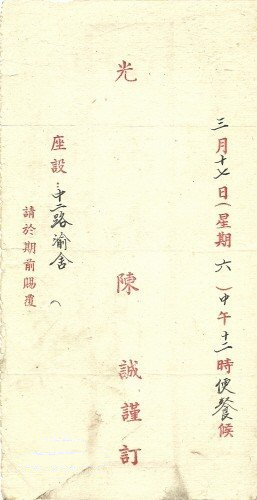 三月十七日(星期六)中午十二時便餐候
光
陳誠謹訂
座設:中二路渝舍(
請於期前賜覆